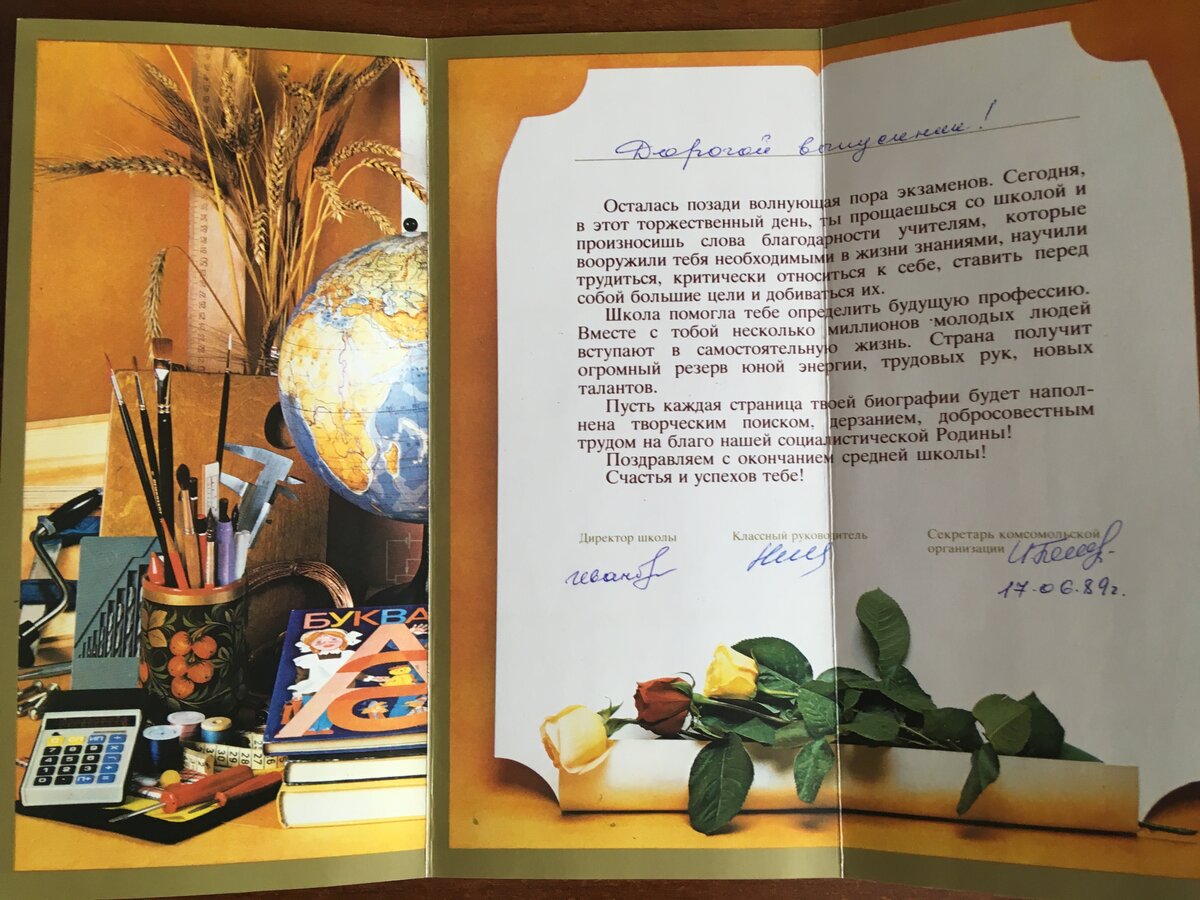 Дорогой выпускник!
Осталась позади волнующая пора экзаменов. Сегодня,
в этот торжественный день, ты прощаешься со школой и
произносишь слова благодарности учителям, которые
вооружили тебя необходимыми в жизни знаниями, научили
трудиться, критически относиться к себе, ставить перед
собой большие цели и добиваться их.
Школа помогла тебе определить будущую профессию.
Вместе с тобой несколько миллионов молодых людей
вступают в самостоятельную жизнь. Страна получит
огромный резерв юной энергии, трудовых рук, новых
талантов.
Пусть каждая страница твоей биографии будет напол-
нена творческим поиском, дерзанием, добросовестным
трудом на благо нашей социалистической Родины!
Поздравляем с окончанием средней школы!
Счастья и успехов тебе!
Директор школы
Классный руководитель
Секретарь комсомольской
организации
17.06.89г.
БУКВА
А